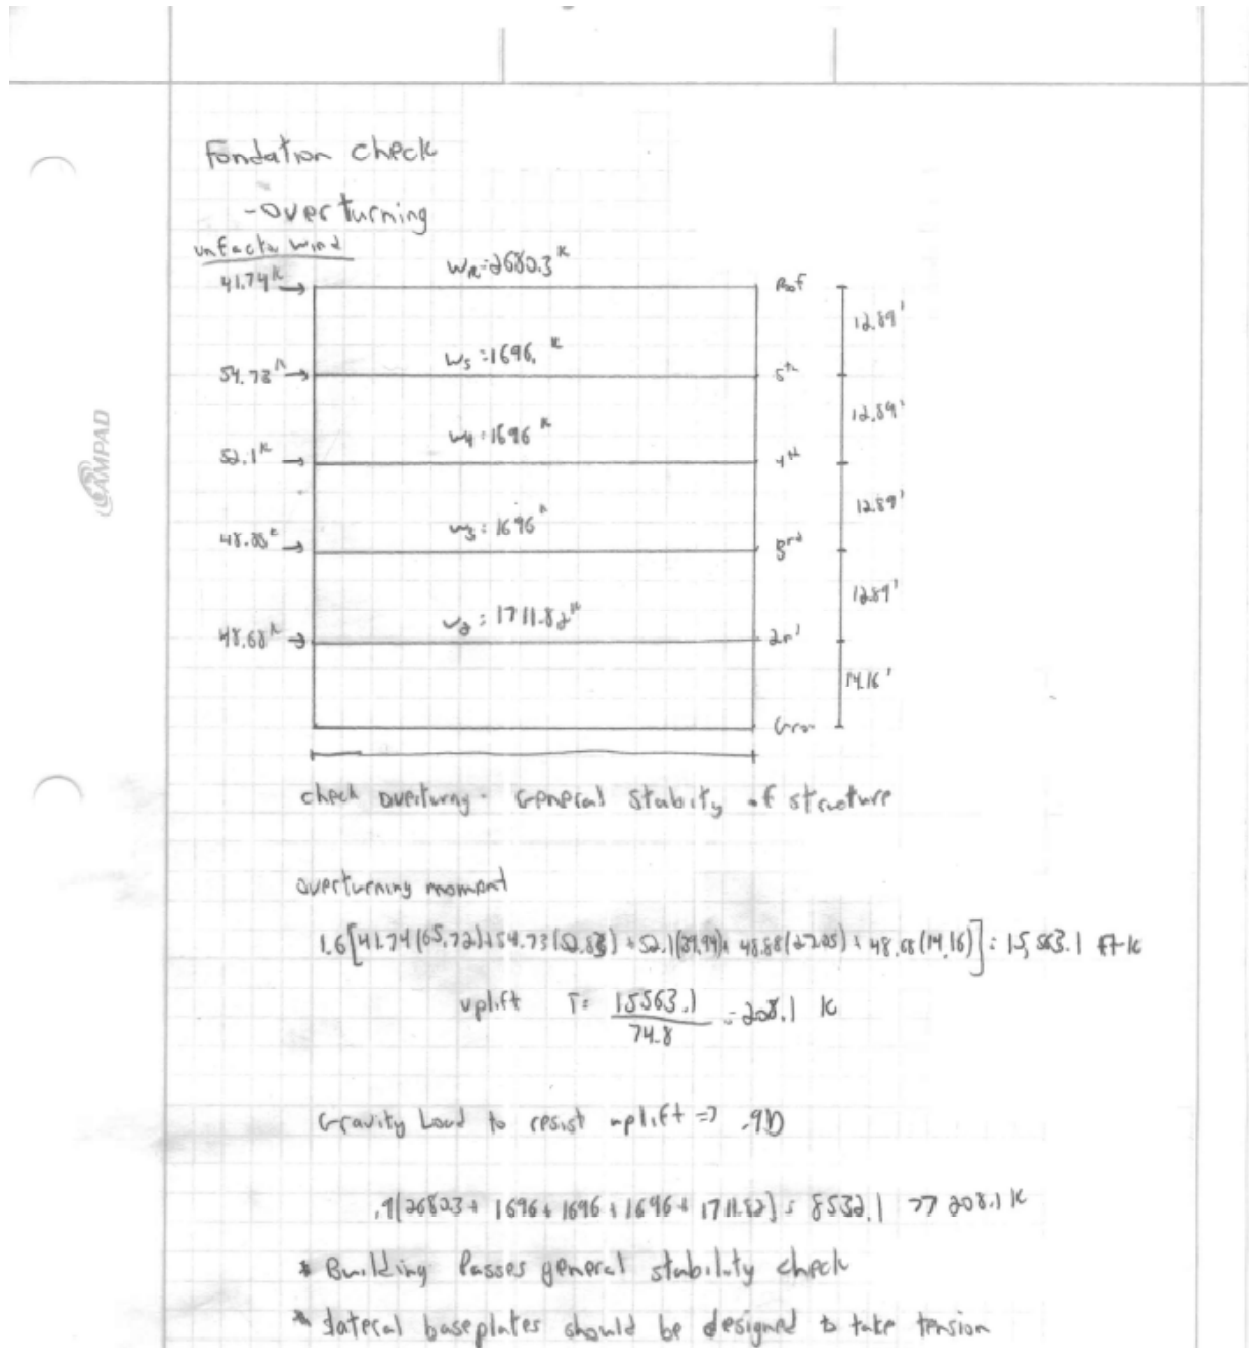 Fondation check
-Overturning
unfacto wind
41.74ᵏ W_R=2680.3ᵏ Roof
12.89'
54.73ᵏ W₅=1696.ᵏ 5th
12.89'
52.1ᵏ W₄=1696ᵏ 4th
12.89'
48.88ᵏ W₃=1696ᵏ 3rd
12.89'
48.68ᵏ W₂=1711.82ᵏ 2nd
14.16'
AMPAD
check overturng - General Stabity of structure
overturning moment
1.6[41.74(65.72)+54.73(52.83)+52.1(39.94)+48.88(27.05)+48.68(14.16)]=15,563.1 ft-k
uplift T= 15563.1/74.8 =208.1 k
Gravity Load to resist uplift => .9D
.9[2680.3+1696+1696+1696+1711.82]=8532.1 >> 208.1 k
* Building Passes general stability check
* lateral baseplates should be designed to take tension